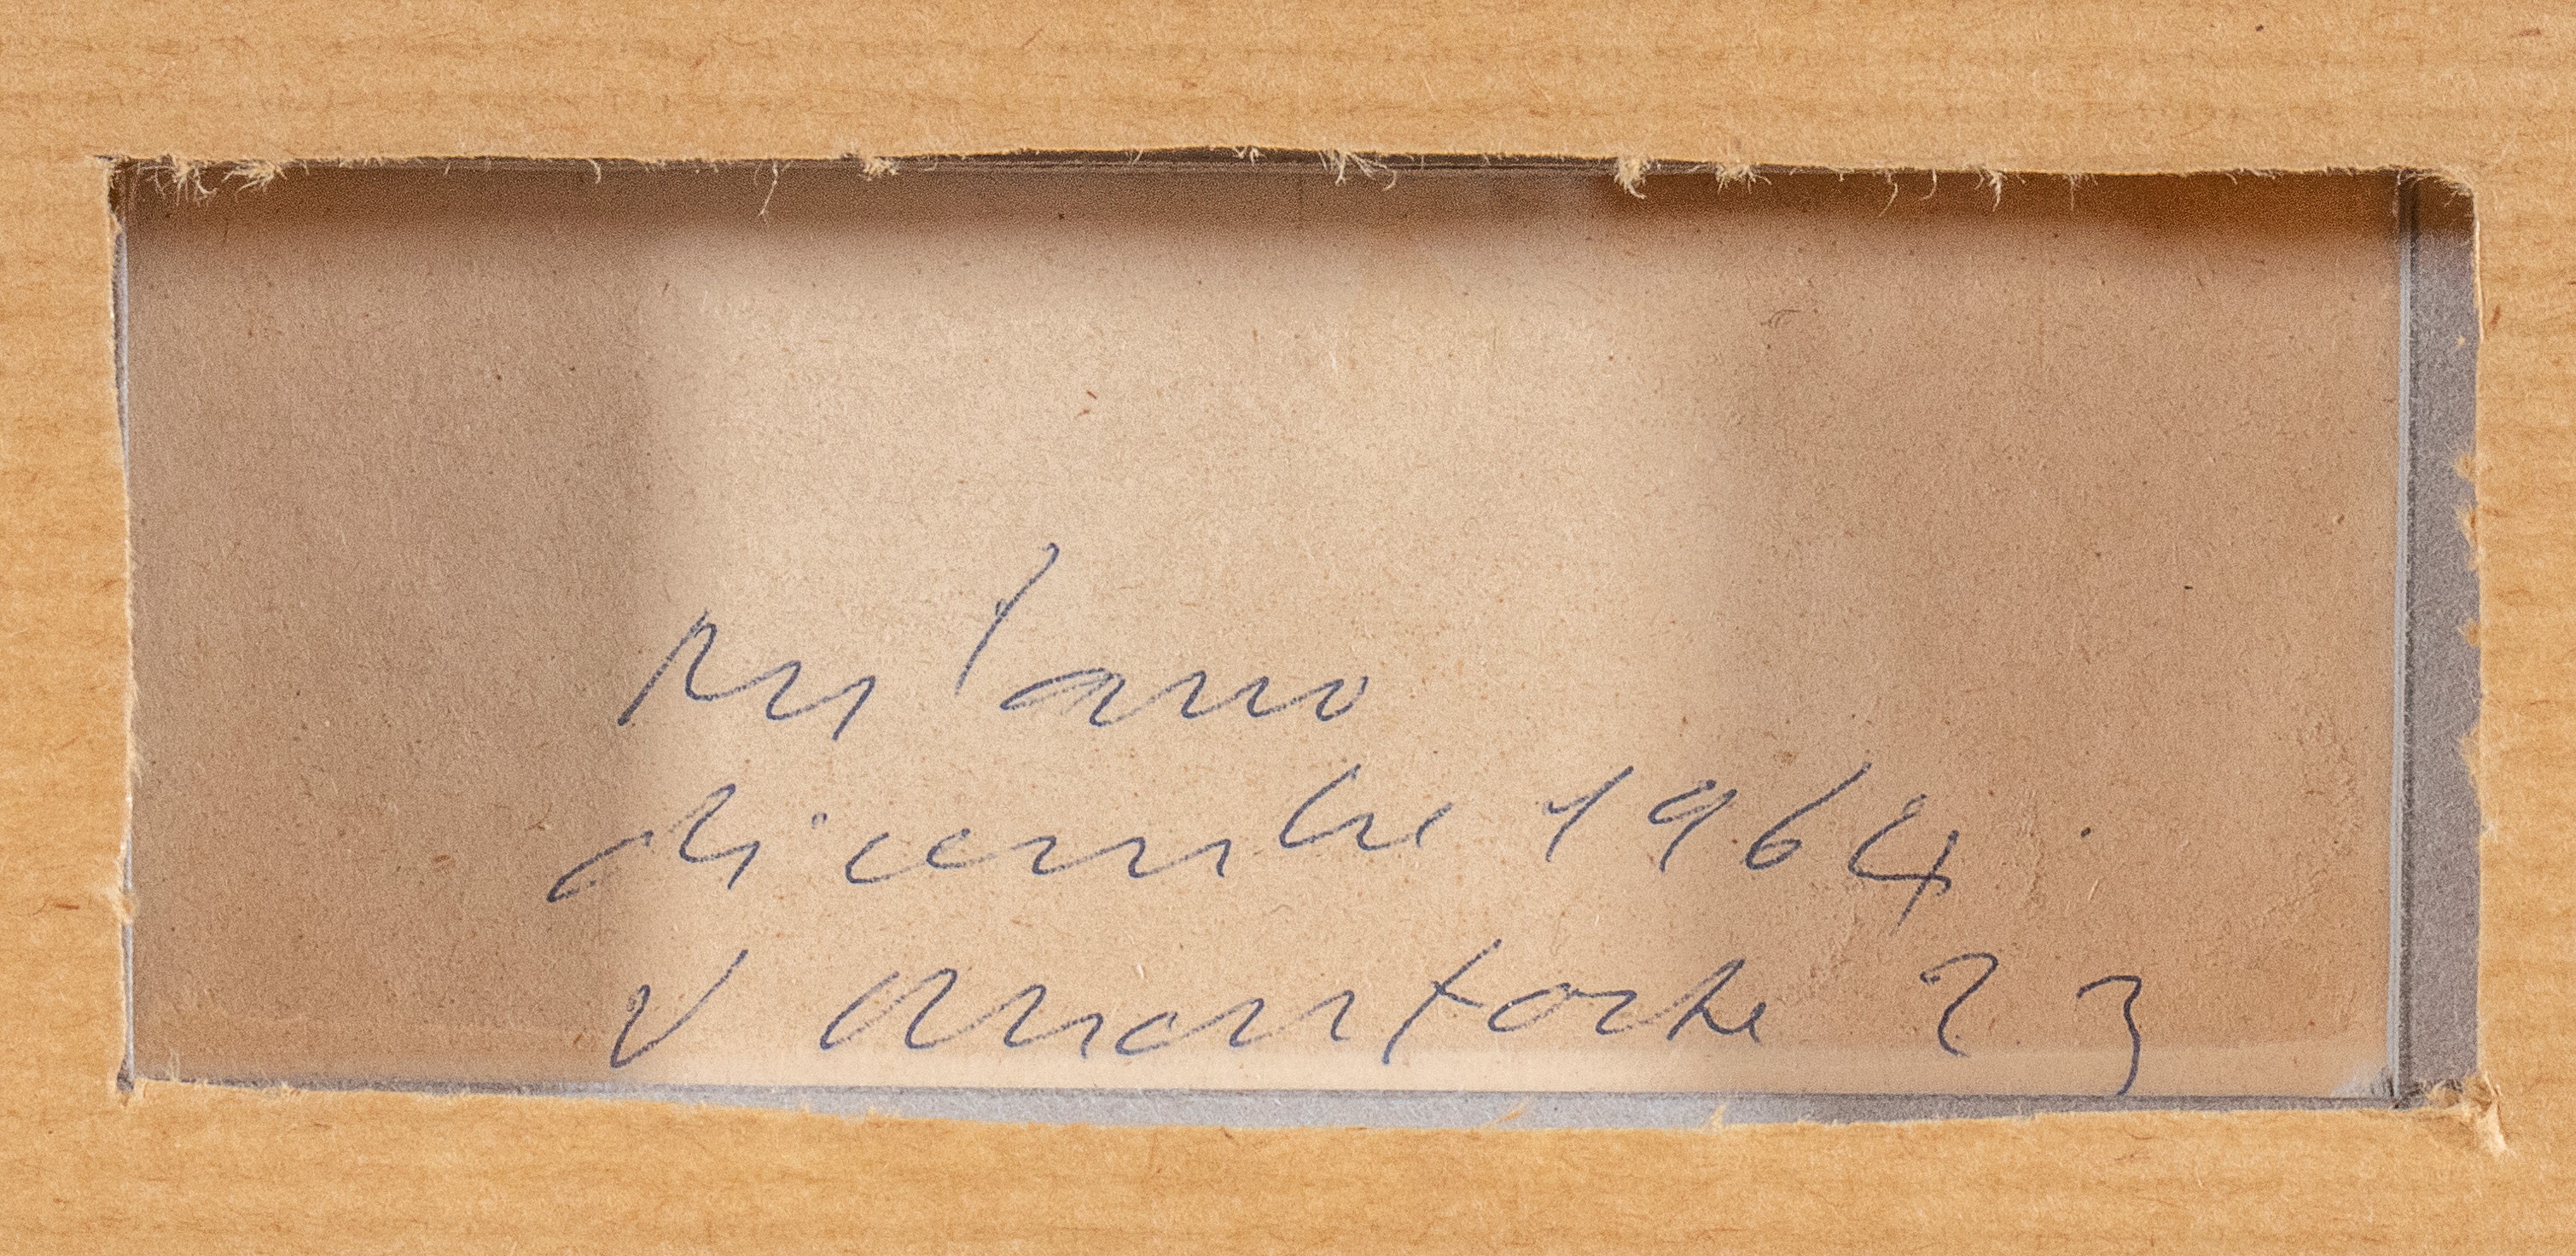 Milano
dicembre 1964.
V 23